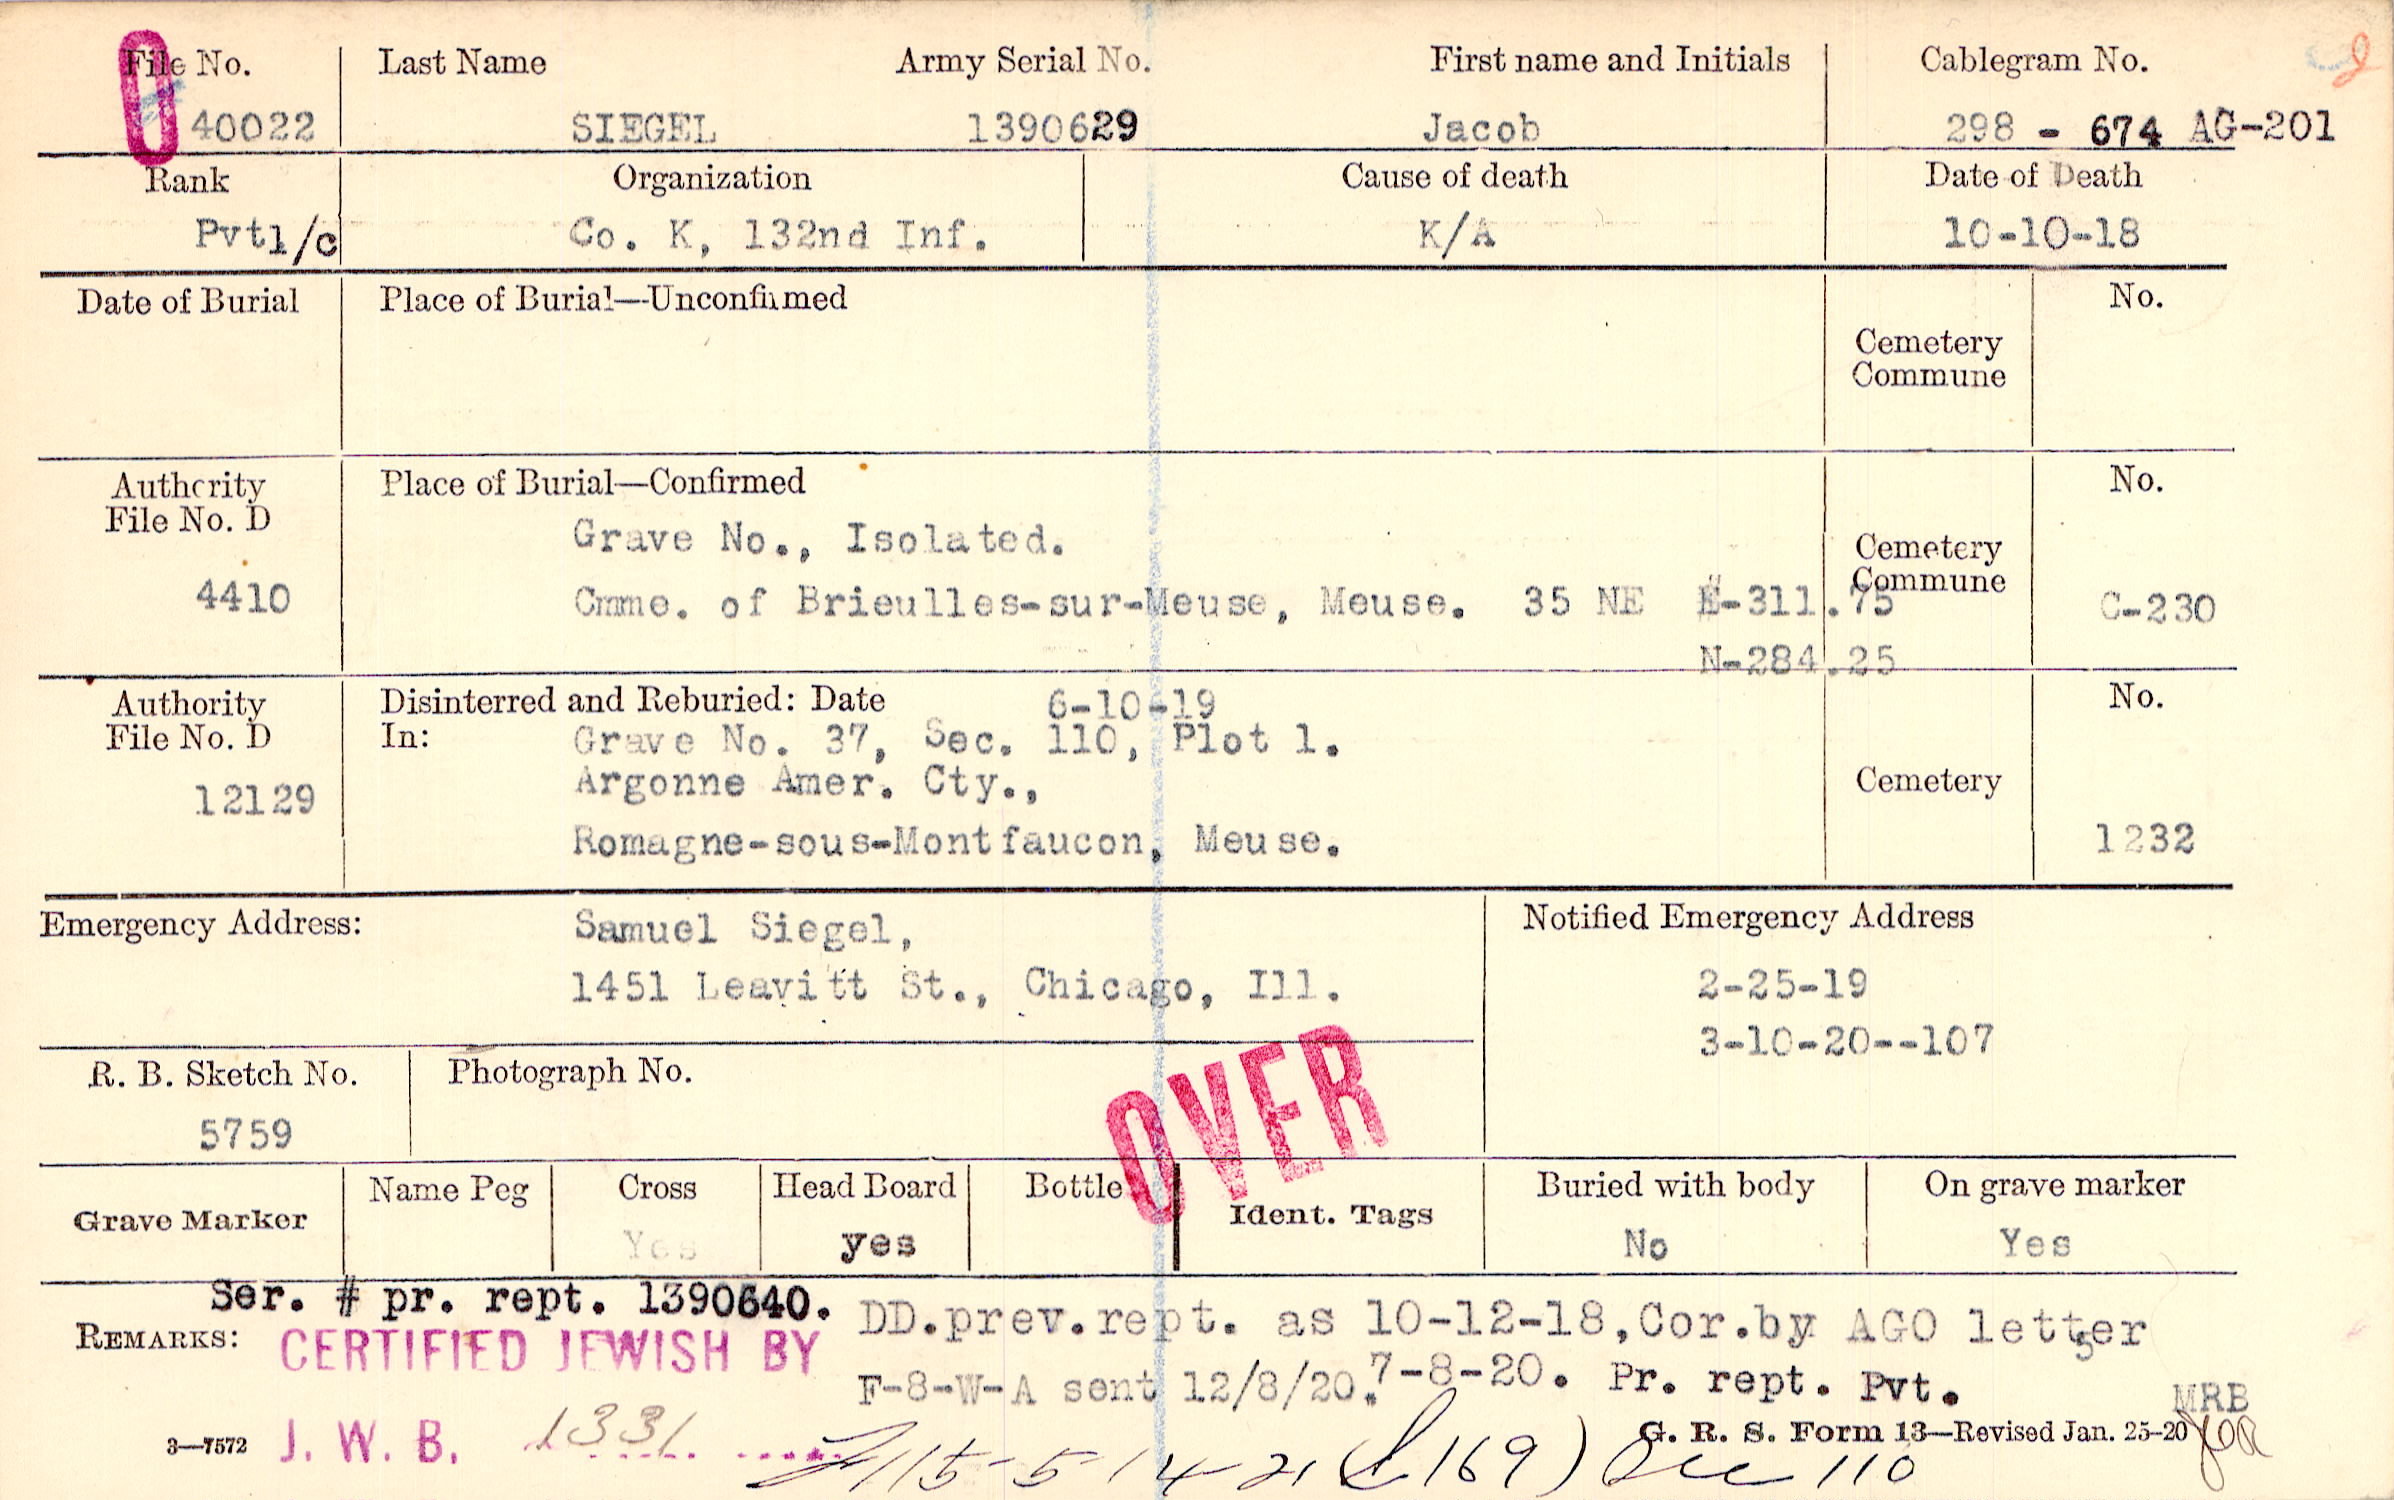 File No. Last Name Army Serial No. First name and Initials Cablegram No.
40022 SIEGEL 1390629 Jacob 298 - 674 AG-201
Rank Organization Cause of death Date of Death
Pvt1/c Co. K, 132nd Inf. K/A 10-10-18
Date of Burial Place of Burial—Unconfirmed No.
Cemetery
Commune
Authority Place of Burial—Confirmed No.
File No. D
Grave No., Isolated.
Cemetery
Commune
4410 Cmme. of Brieulles-sur-Meuse, Meuse. 35 NE E-311.75 C-230
N-284.25
Authority Disinterred and Reburied: Date 6-10-19 No.
File No. D In: Grave No. 37, Sec. 110, Plot 1.
Argonne Amer. Cty., Cemetery
12129
Romagne-sous-Montfaucon, Meuse. 1232
Emergency Address: Samuel Siegel, Notified Emergency Address
1451 Leavitt St., Chicago, Ill. 2-25-19
3-10-20--107
R. B. Sketch No. Photograph No.
OVER
5759
Grave Marker Name Peg Cross Head Board Bottle Ident. Tags Buried with body On grave marker
Yes yes No Yes
Ser. # pr. rept. 1390640. DD.prev.rept. as 10-12-18,Cor.by AGO letter
REMARKS: CERTIFIED JEWISH BY
F-8-W-A sent 12/8/20. 7-8-20. Pr. rept. Pvt. MRB
3—7572 J. W. B. 1331 G. R. S. Form 13—Revised Jan. 25-20
115-5 14-21 169) Sec 110